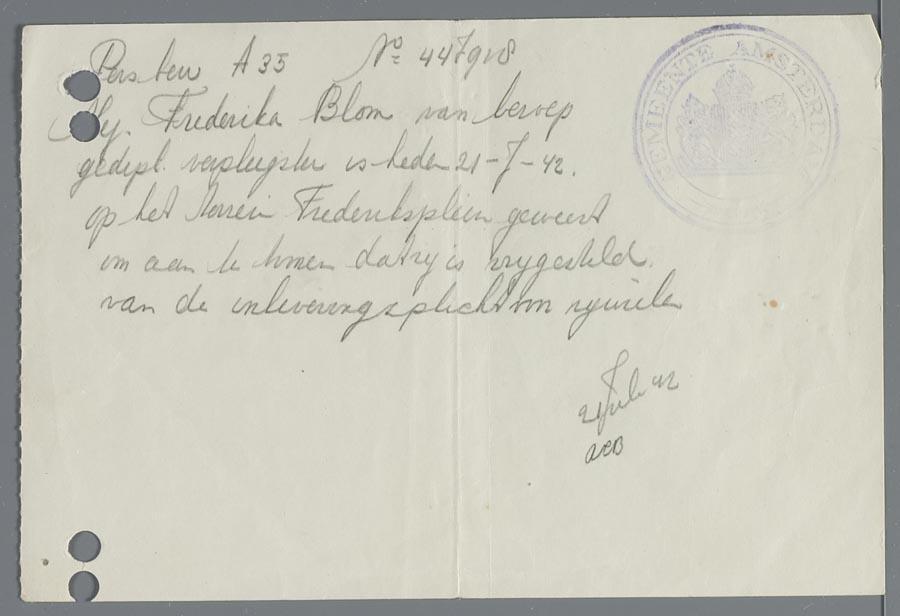 Pers bew A 35 No 447918
Mej. Frederika Blom van beroep
gedipl. verpleegster is heden 21-7-42.
op het terrein Frederiksplein geweest
om aan te tonen dat zij is vrijgesteld.
van de inleveringsplicht van rijwielen
21 Juli 42
GEMEENTE AMSTERDAM